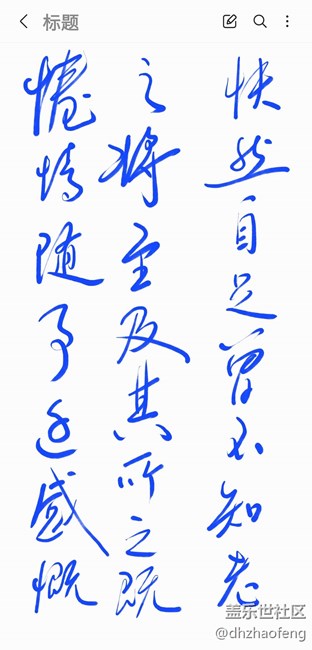 标题
快然自足曾不知老
之将至及其所之既
惓情随事迁感慨
盖乐世社区
@dhzhaofeng